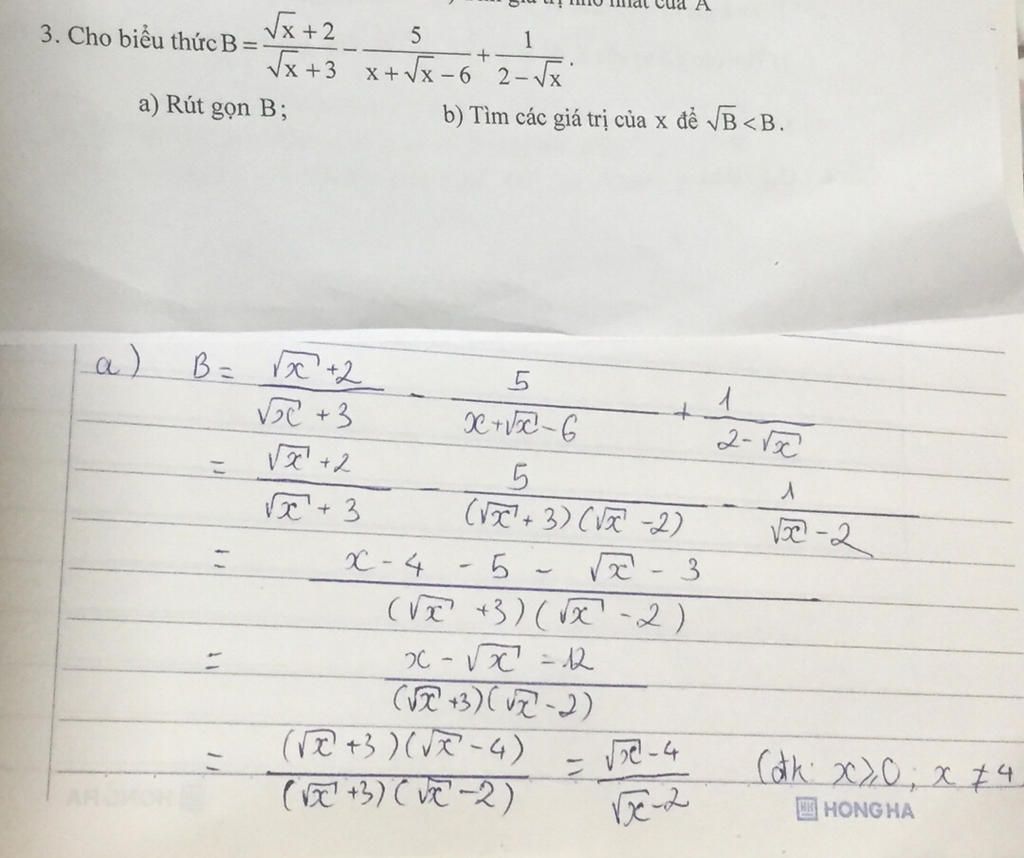 nhỏ nhất của A
3. Cho biểu thức B = (√x + 2)/(√x + 3) − 5/(x + √x − 6) + 1/(2 − √x).
a) Rút gọn B; b) Tìm các giá trị của x để √B < B.
a) B = (√x + 2)/(√x + 3) - 5/(x + √x - 6) + 1/(2 - √x)
= (√x + 2)/(√x + 3) - 5/((√x + 3)(√x - 2)) - 1/(√x - 2)
= (x - 4 - 5 - √x - 3)/((√x + 3)(√x - 2))
= (x - √x = 12)/((√x + 3)(√x - 2))
= ((√x + 3)(√x - 4))/((√x + 3)(√x - 2)) = (√x - 4)/(√x - 2) (đk: x ⩾ 0; x ≠ 4
HONG HA